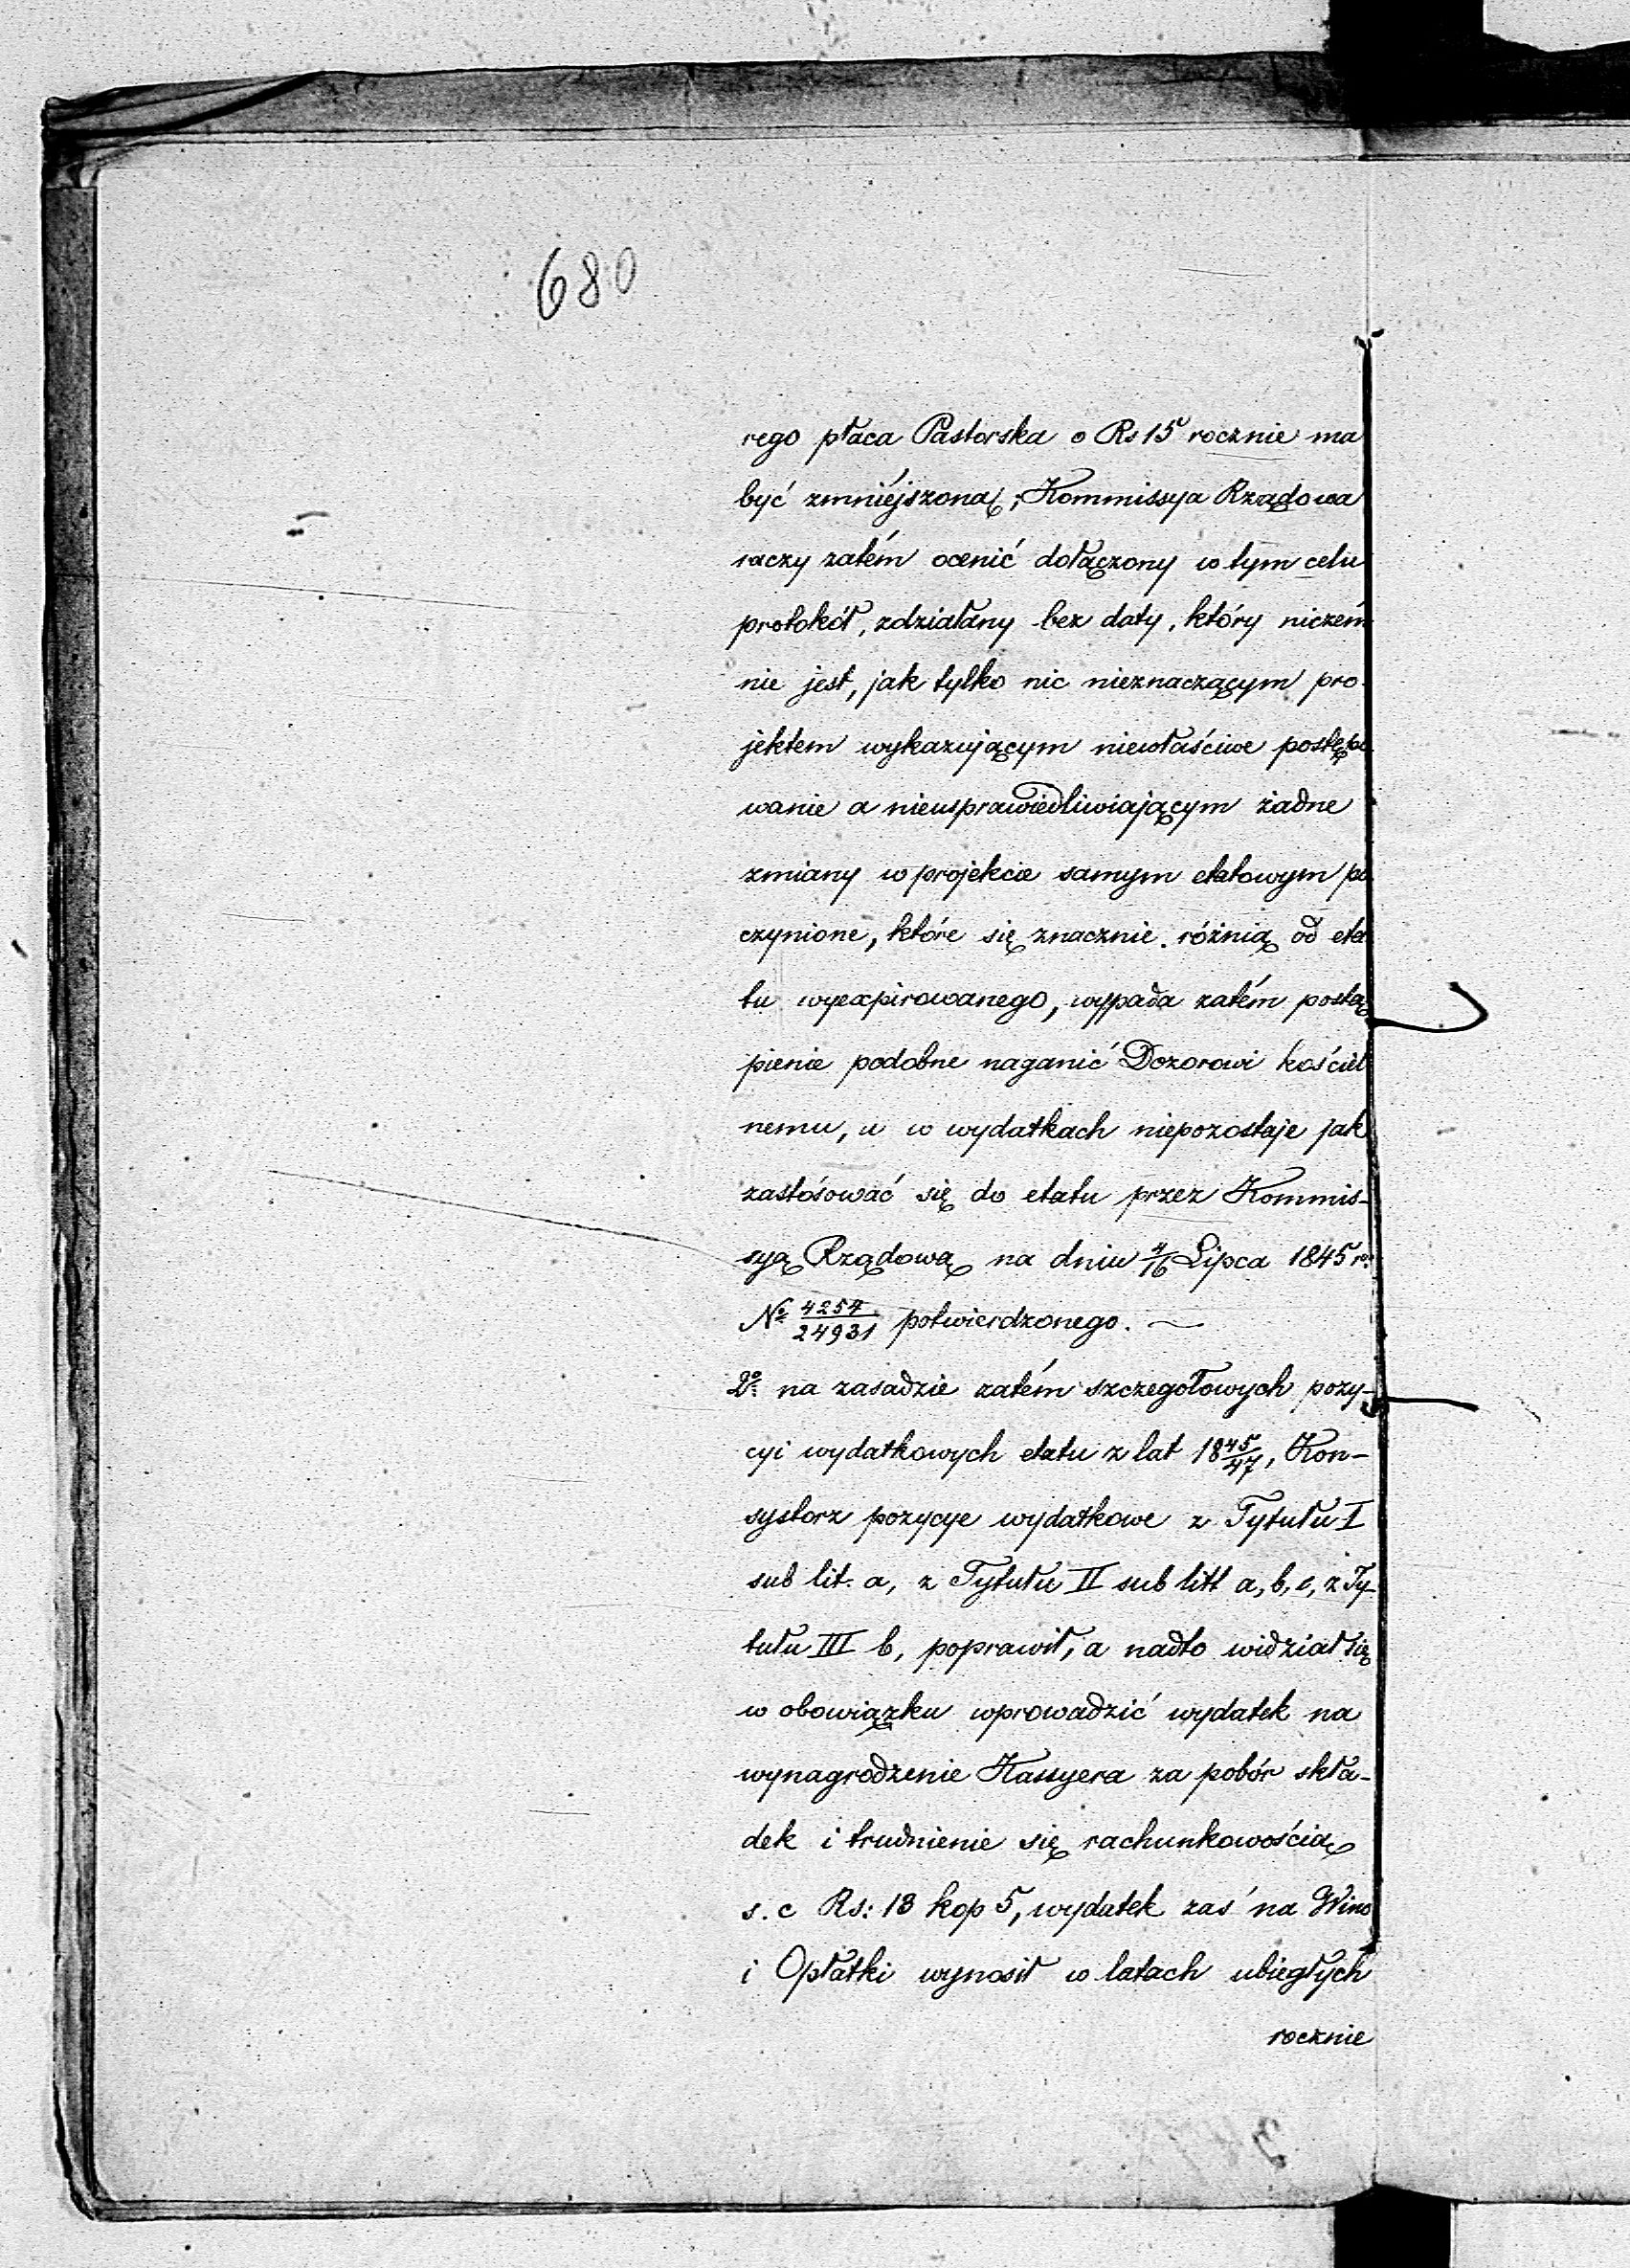 680
rego płaca Pastorska o Rs 15 rocznie ma
być zmniéjszoną; Kommissya Rządowa
raczy zatém ocenić dołączony w tym celu
protokół, zdziałany bez daty, który niczém
nie jest, jak tylko nic nieznaczącym pro-
jektem wykazującym niewłaściwe postępo
wanie a nieusprawiedliwiającym żadne
zmiany w projekcie samym etatowym po
czynione, które się znacznie różnią od eta
tu wyexpirowanego, wypada zatém postą
pienie podobne naganić Dozorowi kościel
nemu, a w wydatkach niepozostaje jak
zastósować się do etatu przez Kommis-
syą Rządową na dniu 4/16 Lipca 1845 r.
No 4254/24931 potwierdzonego. —
2o na zasadzie zatém szczegołowych pozy-
cyi wydatkowych etatu z lat 1845/47, Kon-
systorz pozycye wydatkowe z Tytułu I
sub lit. a, z Tytułu II sub litt a, b, c, z Ty-
tułu III b, poprawił, a nadto widział się
w obowiązku wprowadzić wydatek na
wynagrodzenie Kassyera za pobór skła-
dek i trudnienie się rachunkowością
s. c Rs: 13 kop 5, wydatek zaś na Wino
i Opłatki wynosił w latach ubiegłych
rocznie